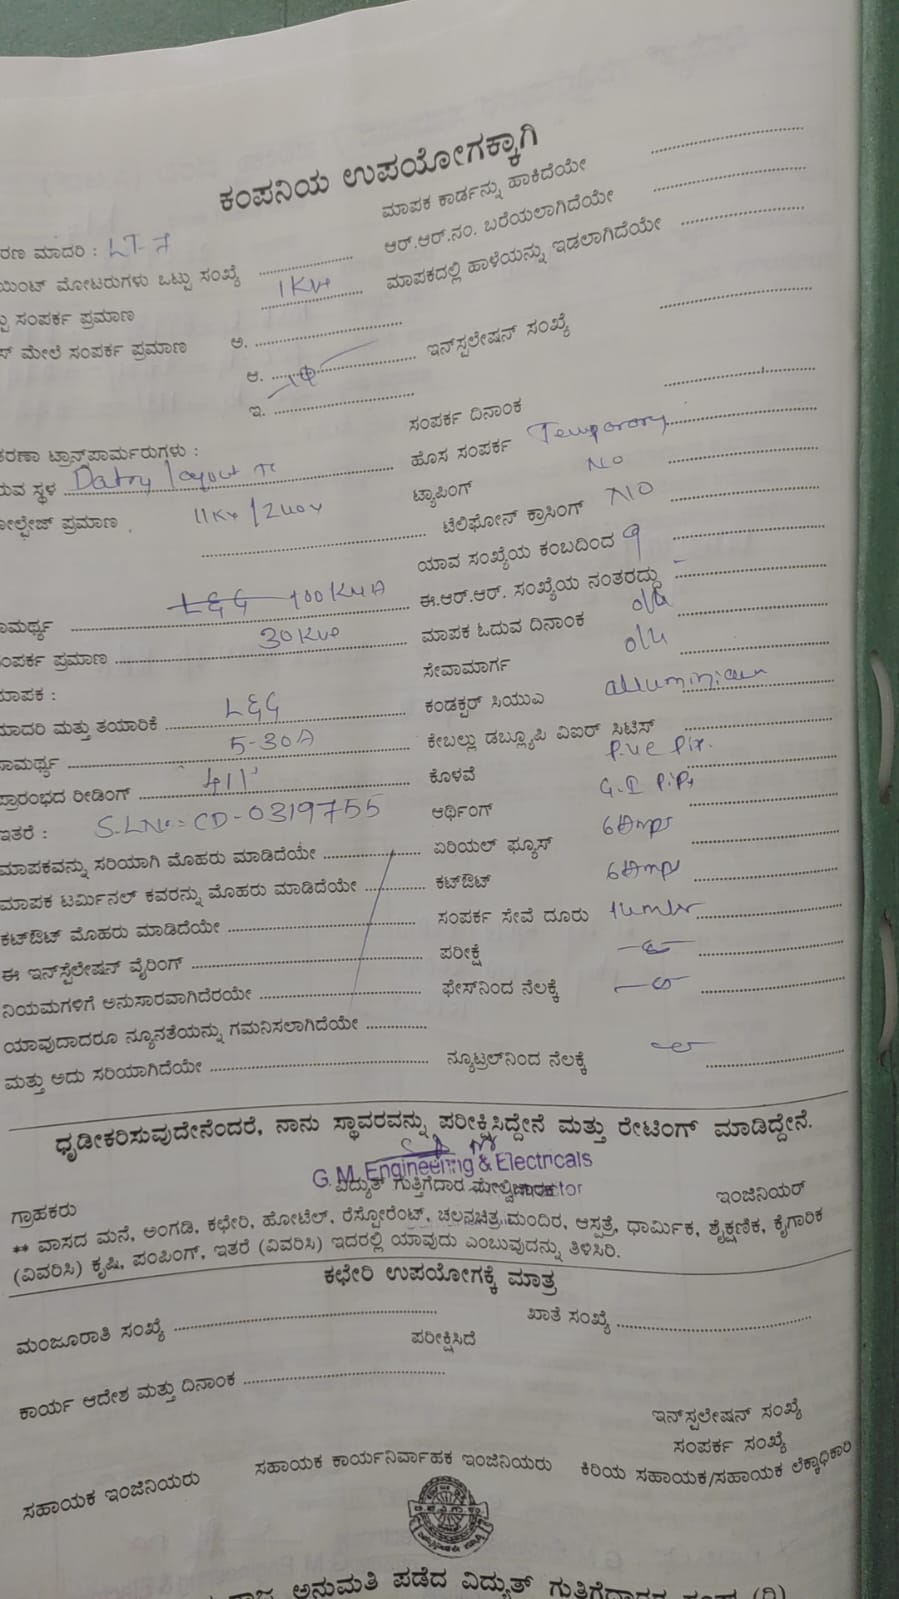 ಕಂಪನಿಯ ಉಪಯೋಗಕ್ಕಾಗಿ
ಮಾಪಕ ಕಾರ್ಡನ್ನು ಹಾಕಿದೆಯೇ
ರಣ ಮಾದರಿ : LT-7 ಆರ್.ಆರ್.ನಂ. ಬರೆಯಲಾಗಿದೆಯೇ
ಯಿಂಟ್ ಮೋಟರುಗಳು ಒಟ್ಟು ಸಂಖ್ಯೆ ಮಾಪಕದಲ್ಲಿ ಹಾಳೆಯನ್ನು ಇಡಲಾಗಿದೆಯೇ
ಸಂಪರ್ಕ ಪ್ರಮಾಣ 1 KW
ಸ್ ಮೇಲೆ ಸಂಪರ್ಕ ಪ್ರಮಾಣ ಅ.
ಆ. 1Φ ಇನ್‌ಸ್ಪಲೇಷನ್ ಸಂಖ್ಯೆ
ಇ.
ಸಂಪರ್ಕ ದಿನಾಂಕ
ಕರಣಾ ಟ್ರಾನ್ಸ್‌ಪಾರ್ಮರುಗಳು : ಹೊಸ ಸಂಪರ್ಕ Temporary
ಯವ ಸ್ಥಳ layout TC ಟ್ಯಾಪಿಂಗ್ NO
ೋಲ್ಟೇಜ್ ಪ್ರಮಾಣ 11KV ಟೆಲಿಫೋನ್ ಕ್ರಾಸಿಂಗ್ NO
ಯಾವ ಸಂಖ್ಯೆಯ ಕಂಬದಿಂದ 9
ಾಮರ್ಥ್ಯ L&G 100 KVA ಈ.ಆರ್.ಆರ್. ಸಂಖ್ಯೆಯ ನಂತರದ್ದು -
ಂಪರ್ಕ ಪ್ರಮಾಣ ಮಾಪಕ ಓದುವ ದಿನಾಂಕ
ಮಾಪಕ : ಸೇವಾಮಾರ್ಗ
ಮಾದರಿ ಮತ್ತು ತಯಾರಿಕೆ L&G ಕಂಡಕ್ಟರ್ ಸಿಯುಎ
ಸಾಮರ್ಥ್ಯ 5-30A ಕೇಬಲ್ಲು ಡಬ್ಲ್ಯೂಪಿ ವಿಐಆರ್ ಸಿಟಿಸ್
ಪ್ರಾರಂಭದ ರೀಡಿಂಗ್ ಕೊಳವೆ
ಇತರೆ : S.L No: CD-0319755 ಆರ್ಥಿಂಗ್
ಮಾಪಕವನ್ನು ಸರಿಯಾಗಿ ಮೊಹರು ಮಾಡಿದೆಯೇ ಏರಿಯಲ್ ಫ್ಯೂಸ್ 6 Amps
ಮಾಪಕ ಟರ್ಮಿನಲ್ ಕವರನ್ನು ಮೊಹರು ಮಾಡಿದೆಯೇ ಕಟ್‌ಔಟ್ 6 Amps
ಕಟ್‌ಔಟ್ ಮೊಹರು ಮಾಡಿದೆಯೇ ಸಂಪರ್ಕ ಸೇವೆ ದೂರು
ಈ ಇನ್‌ಸ್ಪೆಲೇಷನ್ ವೈರಿಂಗ್ ಪರೀಕ್ಷೆ
ನಿಯಮಗಳಿಗೆ ಅನುಸಾರವಾಗಿದೆರಯೇ ಫೇಸ್‌ನಿಂದ ನೆಲಕ್ಕೆ
ಯಾವುದಾದರೂ ನ್ಯೂನತೆಯನ್ನು ಗಮನಿಸಲಾಗಿದೆಯೇ
ಮತ್ತು ಅದು ಸರಿಯಾಗಿದೆಯೇ ನ್ಯೂಟ್ರಲ್‌ನಿಂದ ನೆಲಕ್ಕೆ
ಧೃಡೀಕರಿಸುವುದೇನೆಂದರೆ, ನಾನು ಸ್ಥಾವರವನ್ನು ಪರೀಕ್ಷಿಸಿದ್ದೇನೆ ಮತ್ತು ರೇಟಿಂಗ್ ಮಾಡಿದ್ದೇನೆ.
G.M. Engineering & Electricals
ಗ್ರಾಹಕರು ವಿದ್ಯುತ್ ಗುತ್ತಿಗೆದಾರ ಇಂಜಿನಿಯರ್
** ವಾಸದ ಮನೆ, ಅಂಗಡಿ, ಕಛೇರಿ, ಹೋಟೆಲ್, ರೆಸ್ಟೋರೆಂಟ್, ಚಲನಚಿತ್ರ ಮಂದಿರ, ಆಸ್ಪತ್ರೆ, ಧಾರ್ಮಿಕ, ಶೈಕ್ಷಣಿಕ, ಕೈಗಾರಿಕ
(ವಿವರಿಸಿ) ಕೃಷಿ, ಪಂಪಿಂಗ್, ಇತರೆ (ವಿವರಿಸಿ) ಇದರಲ್ಲಿ ಯಾವುದು ಎಂಬುವುದನ್ನು ತಿಳಿಸಿರಿ.
ಕಛೇರಿ ಉಪಯೋಗಕ್ಕೆ ಮಾತ್ರ
ಮಂಜೂರಾತಿ ಸಂಖ್ಯೆ ಖಾತೆ ಸಂಖ್ಯೆ
ಪರೀಕ್ಷಿಸಿದೆ
ಕಾರ್ಯ ಆದೇಶ ಮತ್ತು ದಿನಾಂಕ
ಇನ್‌ಸ್ಪಲೇಷನ್ ಸಂಖ್ಯೆ
ಸಂಪರ್ಕ ಸಂಖ್ಯೆ
ಸಹಾಯಕ ಇಂಜಿನಿಯರು ಸಹಾಯಕ ಕಾರ್ಯನಿರ್ವಾಹಕ ಇಂಜಿನಿಯರು ಕಿರಿಯ ಸಹಾಯಕ/ಸಹಾಯಕ ಲೆಕ್ಕಾಧಿಕಾರಿ
ಅನುಮತಿ ಪಡೆದ ವಿದ್ಯುತ್ ಗುತ್ತಿಗೆದಾರರ ಸಂಘ (ರಿ)